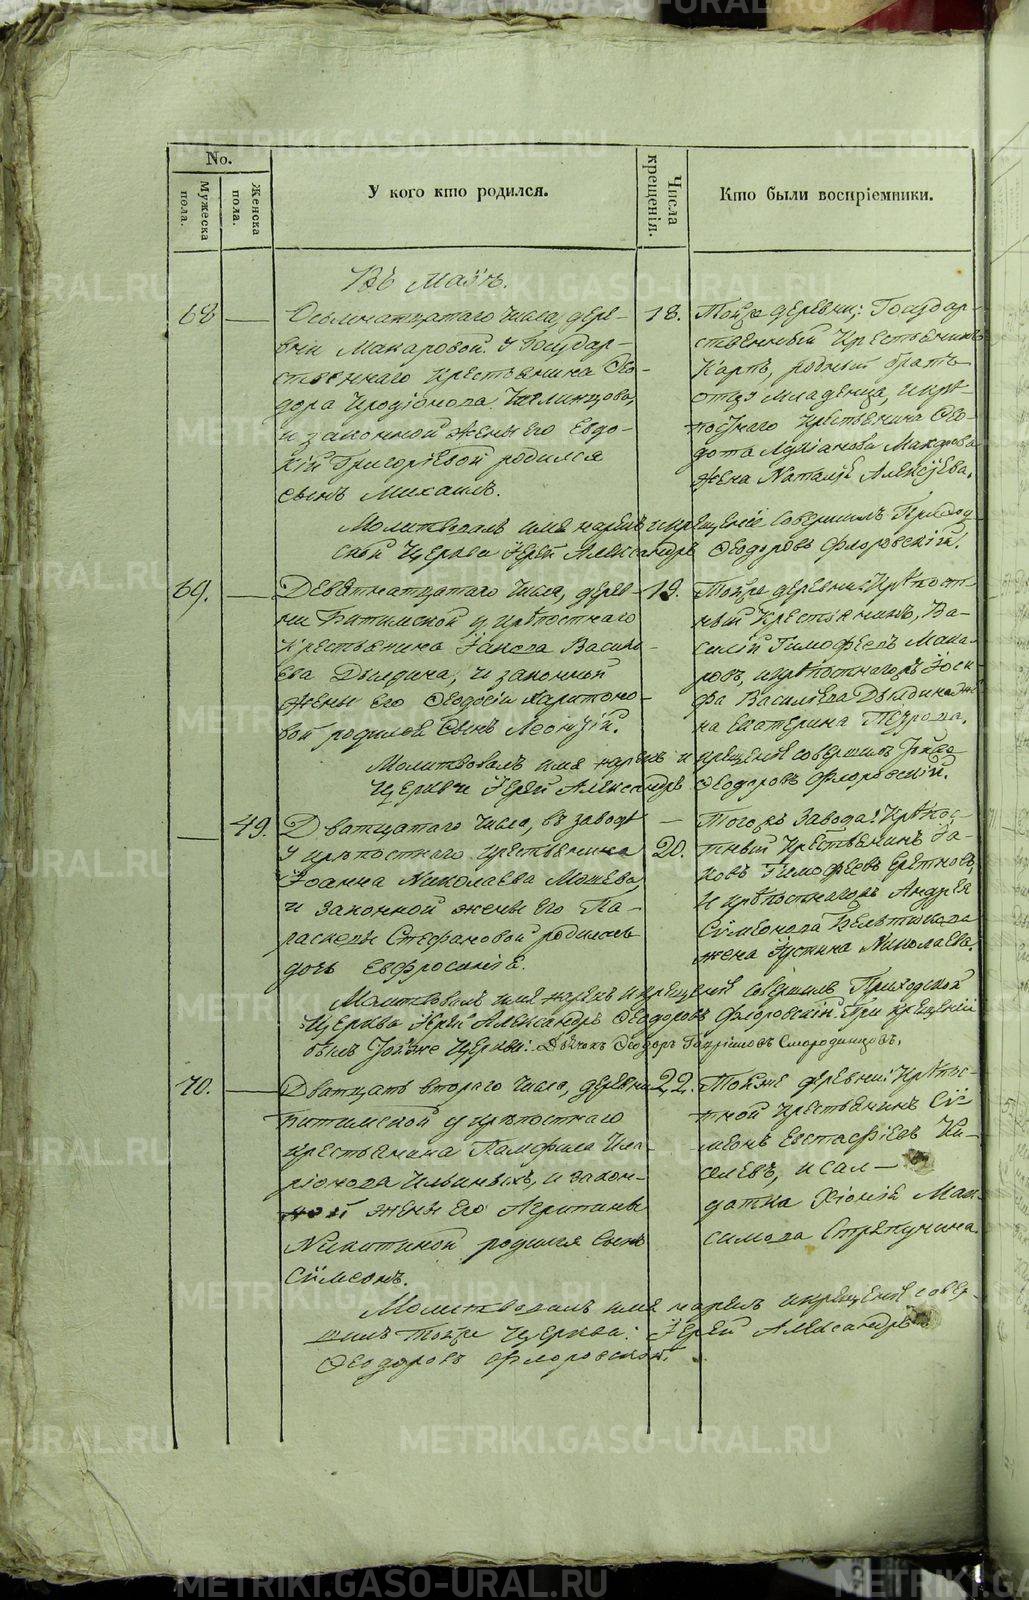 No.
Мужеска пола.
Женска пола.
У кого кто родился.
Числа крещенія.
Кто были воспріемники.
Въ Маіѣ.
68 —
Осьмнатцатаго числа, дере-
вни Макаровой. У Государ-
ственнаго крестьянина Ѳео-
дора Иродіонова
и законной жены его Евдо-
кіи Григоріевой родился
сынъ Михаилъ.
18.
Тойже деревни: Государ-
ственный крестьянинъ
Карпъ, родный братъ
отцу младенца, и крѣ-
постнаго крестьянина Ѳео-
дота Лукіанова Макарова
жена Наталія Алексѣева.
Молитвовалъ имя нарекъ и крещеніе совершилъ Приход-
ской церкви Іерей Александръ Ѳеодоровъ Флоровскій.
69. —
Девятнатцатаго числа, дерев-
ни Битимской у крѣпостнаго
крестьянина Іакова Василь-
ева Дылдина, и законной
жены его Ѳеодосіи Харитоно-
вой родился сынъ Леонтій.
19.
Тойже деревни: Крѣпост-
ный крестьянинъ, Ва-
силій Тимофеевъ Мака-
ровъ, и крѣпостнагожъ Іоси-
фа Васильева Дылдина же-
на Екатерина Петрова.
Молитвовалъ имя нарекъ и крещеніе совершилъ Тойже
церкви Іерей Александръ Ѳеодоровъ Флоровскій.
— 49.
Дватцатаго числа, въ заводѣ
у крѣпостнаго крестьянина
Іоанна Николаева
и законной жены его Па-
раскевы Стефановой родилась
дочь Евфросинія.
—
20.
Тогожъ Завода: Крѣпос-
тный крестьянинъ Іа-
ковъ Тимофеевъ
и крѣпостнагожъ Андрея
Симеонова
жена Іустина Николаева.
Молитвовалъ имя нарекъ и крещеніе совершилъ Приходской
церкви Іерей Александръ Ѳеодоровъ Флоровскій. При крещеніи
былъ Тойже церкви: Дьячокъ Ѳеодоръ Гавріиловъ Смородинцовъ.
70. —
Дватцать втораго числа, деревни
Битимской у крѣпостнаго
крестьянина Памфила Ила-
ріонова Ильиныхъ, и закон-
ной жены его Агрипины
Никитиной родился сынъ
Симеонъ.
22.
Тойже деревни: Крѣпос-
тной крестьянинъ Си-
меонъ Евстафіевъ Ки-
селевъ, и сал-
датка Хіонія Мак-
симова Стряпунина.
Молитвовалъ имя нарекъ и крещеніе совер-
шилъ тойже церкви: Іерей Александръ
Ѳеодоровъ Флоровской.
METRIKI.GASO-URAL.RU